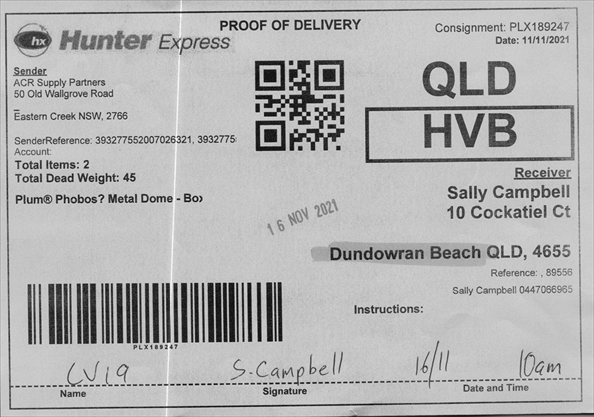 PROOF OF DELIVERY
Consignment: PLX189247
Date: 11/11/2021
hx Hunter Express
Sender
ACR Supply Partners
50 Old Wallgrove Road
Eastern Creek NSW, 2766
SenderReference: 393277552007026321, 3932775
Account:
Total Items: 2
Total Dead Weight: 45
Plum® Phobos? Metal Dome - Box
QLD
HVB
Receiver
Sally Campbell
10 Cockatiel Ct
16 NOV 2021
Dundowran Beach QLD, 4655
Reference: , 89556
Sally Campbell 0447066965
Instructions:
PLX189247
CV19 S. Campbell 16/11 10am
Name Signature Date and Time